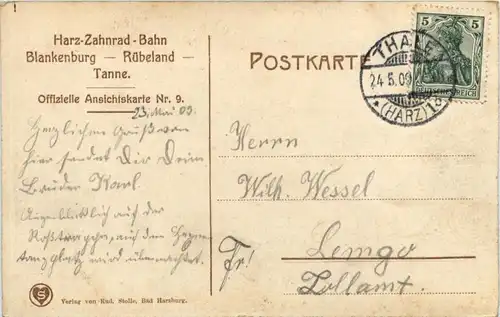 Harz-Zahnrad-Bahn
Blankenburg — Rübeland —
Tanne.
Offizielle Ansichtskarte Nr. 9.
23. Mai 09.
Herzlichen Gruß von
hier sendet Dir Dein
Bruder Karl
Augenblicklich auf der
Roßtrappe, auf dem Hexen
tanzplatz wird übernachtet.
Verlag von Rud. Stolle, Bad Harzburg.
POSTKARTE
THALE
24.5.09
*(HARZ)1
5 5
DEUTSCHES REICH
Herrn
Wilh. Wessel
Fr!
Lemgo
Zollamt.